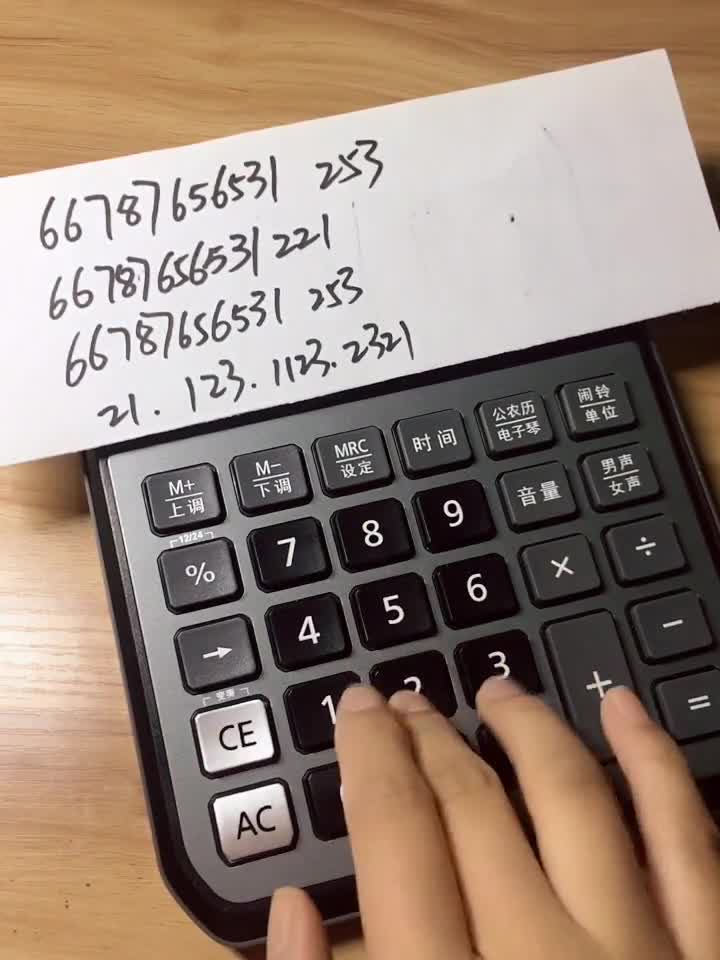 66787656531 253
66787656531 221
66787656531 253
21. 123. 1123. 2321
M+ 上调
M- 下调
MRC 设定
时间
公农历 电子琴
闹铃 单位
12/24
% 7 8 9 音量 男声 女声
→ 4 5 6 × ÷
CE 1 2 3 + −
AC =